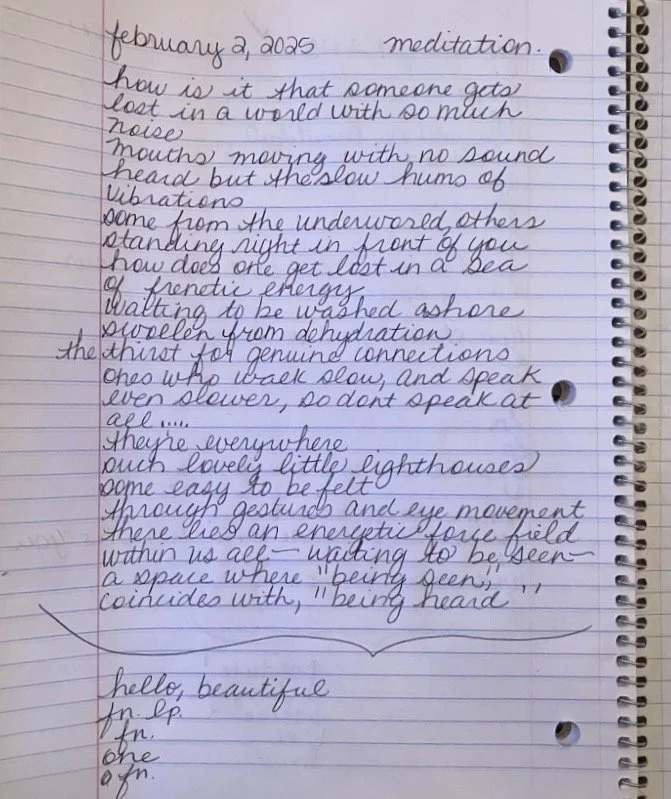 february 2, 2025 meditation.
how is it that someone gets
lost in a world with so much
noise
mouths moving with no sound
heard but the slow hums of
vibrations
some from the underworld, others
standing right in front of you
how does one get lost in a sea
of frenetic energy
waiting to be washed ashore
swollen from dehydration
the thirst for genuine connections
ones who walk slow, and speak
even slower, so dont speak at
all.....
they're everywhere
such lovely little lighthouses
some easy to be felt
through gestures and eye movement
there lies an energetic force field
within us all — waiting to be seen —
a space where "being seen,"
coincides with, "being heard"
hello, beautiful
fn. lp.
fn.
one
a fn.